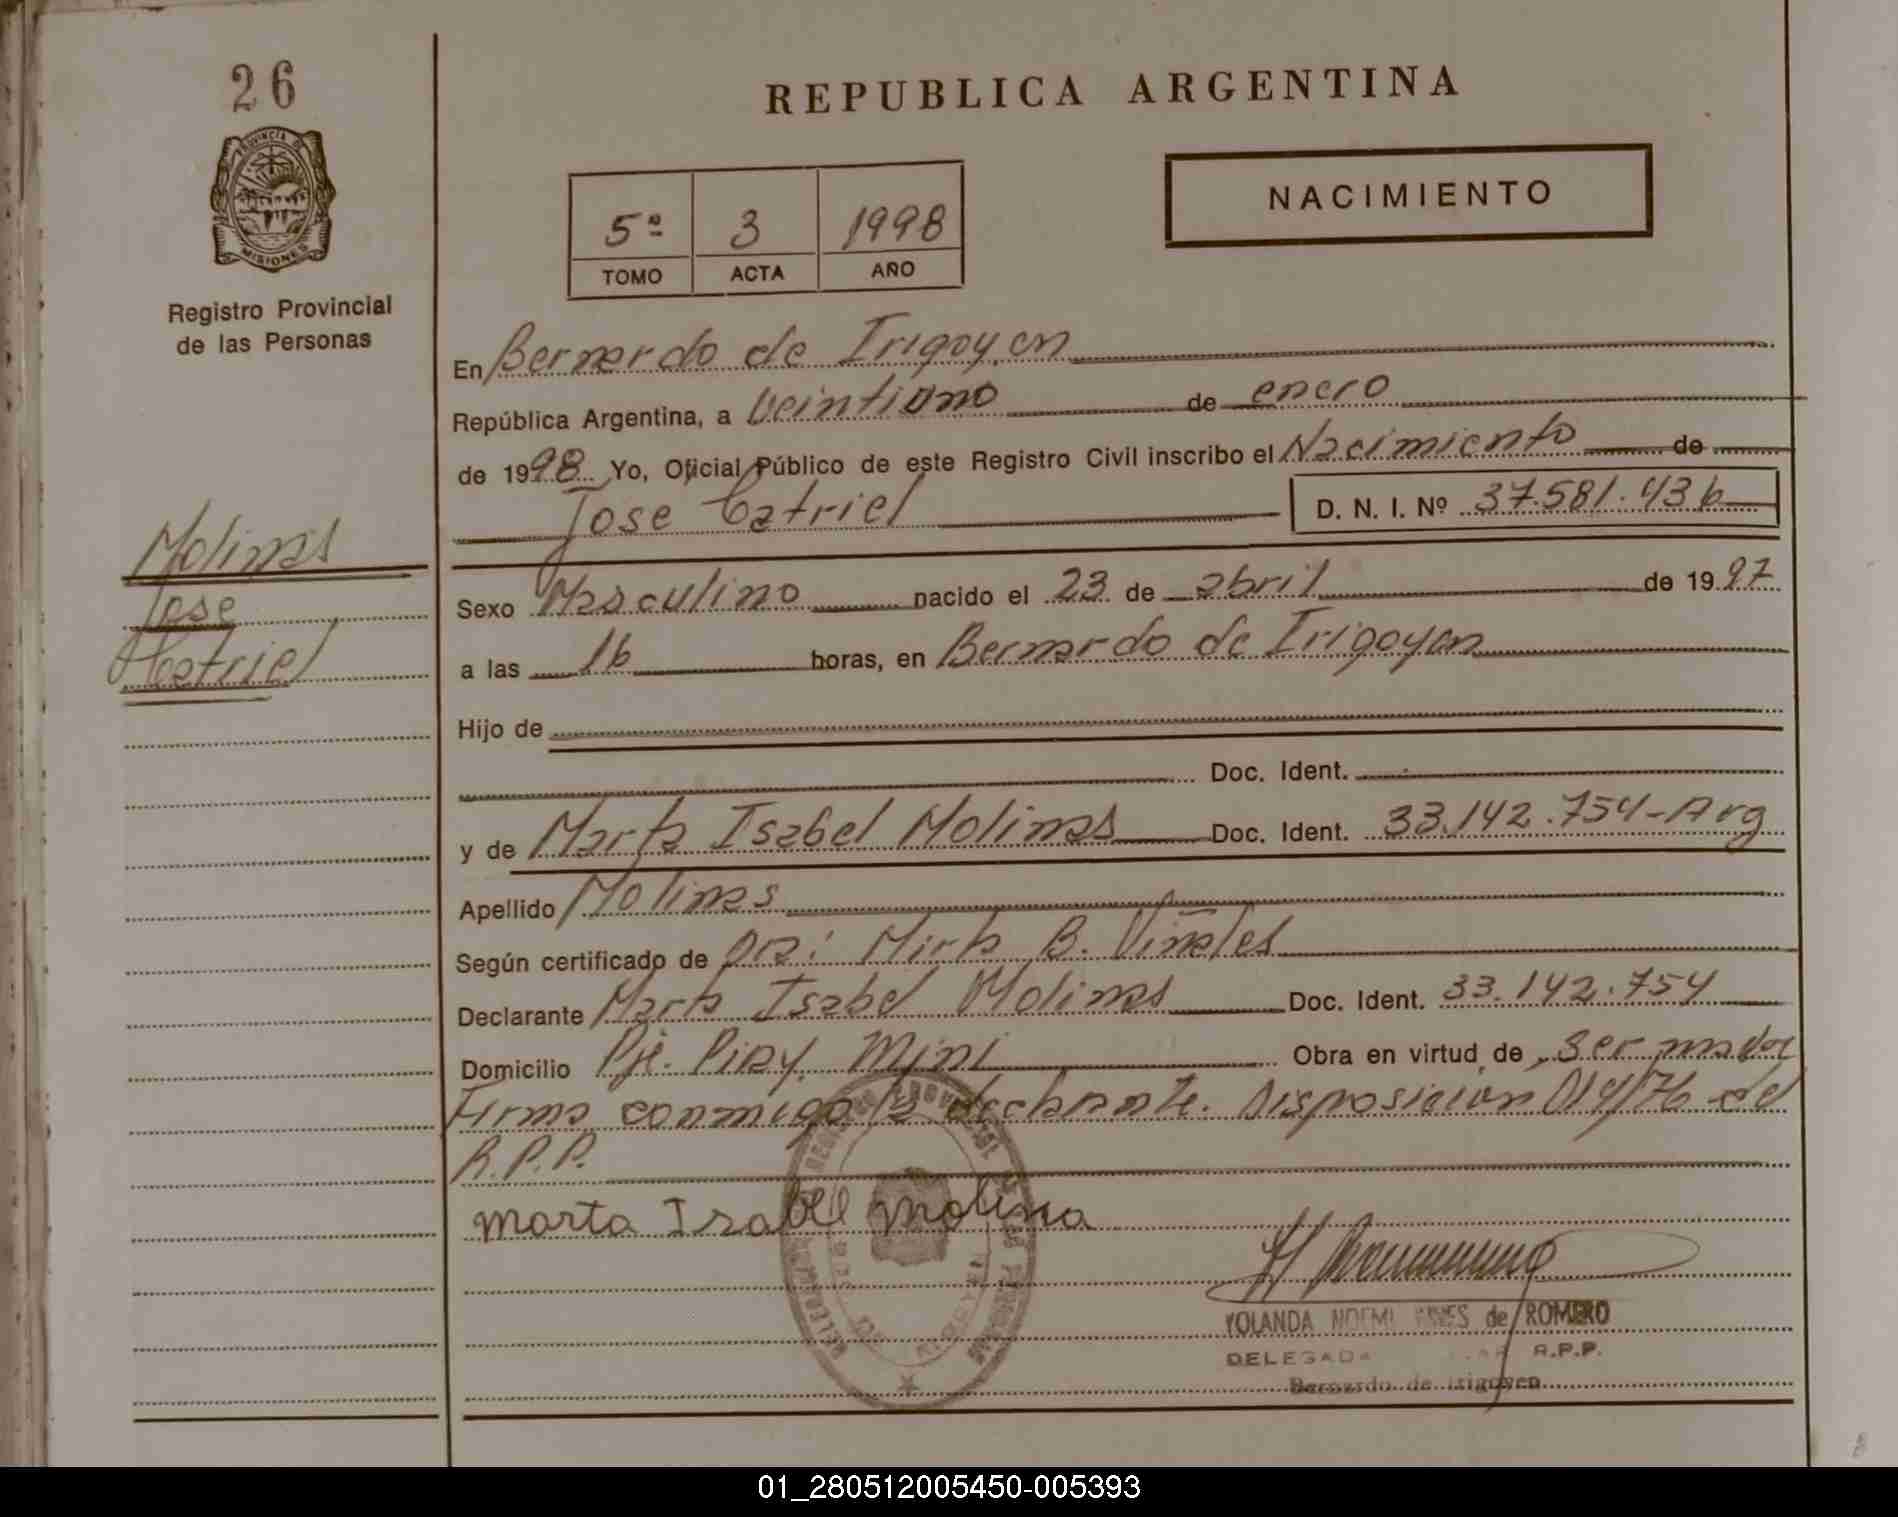 26
PROVINCIA DE
MISIONES
Registro Provincial
de las Personas
REPUBLICA ARGENTINA
NACIMIENTO
5º 3 1998
TOMO ACTA AÑO
En Bernardo de Irigoyen
República Argentina, a veintiuno de enero
de 1998 Yo, Oficial Público de este Registro Civil inscribo el Nacimiento de
Jose Catriel D. N. I. Nº 37.581.436
Molinas
Jose
Catriel
Sexo Masculino nacido el 23 de abril de 1997
a las 16 horas, en Bernardo de Irigoyen
Hijo de
Doc. Ident.
y de Marta Isabel Molinas Doc. Ident. 33.142.754-Arg
Apellido Molinas
Según certificado de Dra: Mirta B. Viñales
Declarante Marta Isabel Molinas Doc. Ident. 33.142.754
Domicilio Pje. Piray Mini Obra en virtud de ser madre
Firma conmigo la declarante. Disposicion 014/76 del
R.P.P.
marta Isabel molina
YOLANDA NOEMI de ROMERO
DELEGADA R.P.P.
Bernardo de Irigoyen
01_280512005450-005393